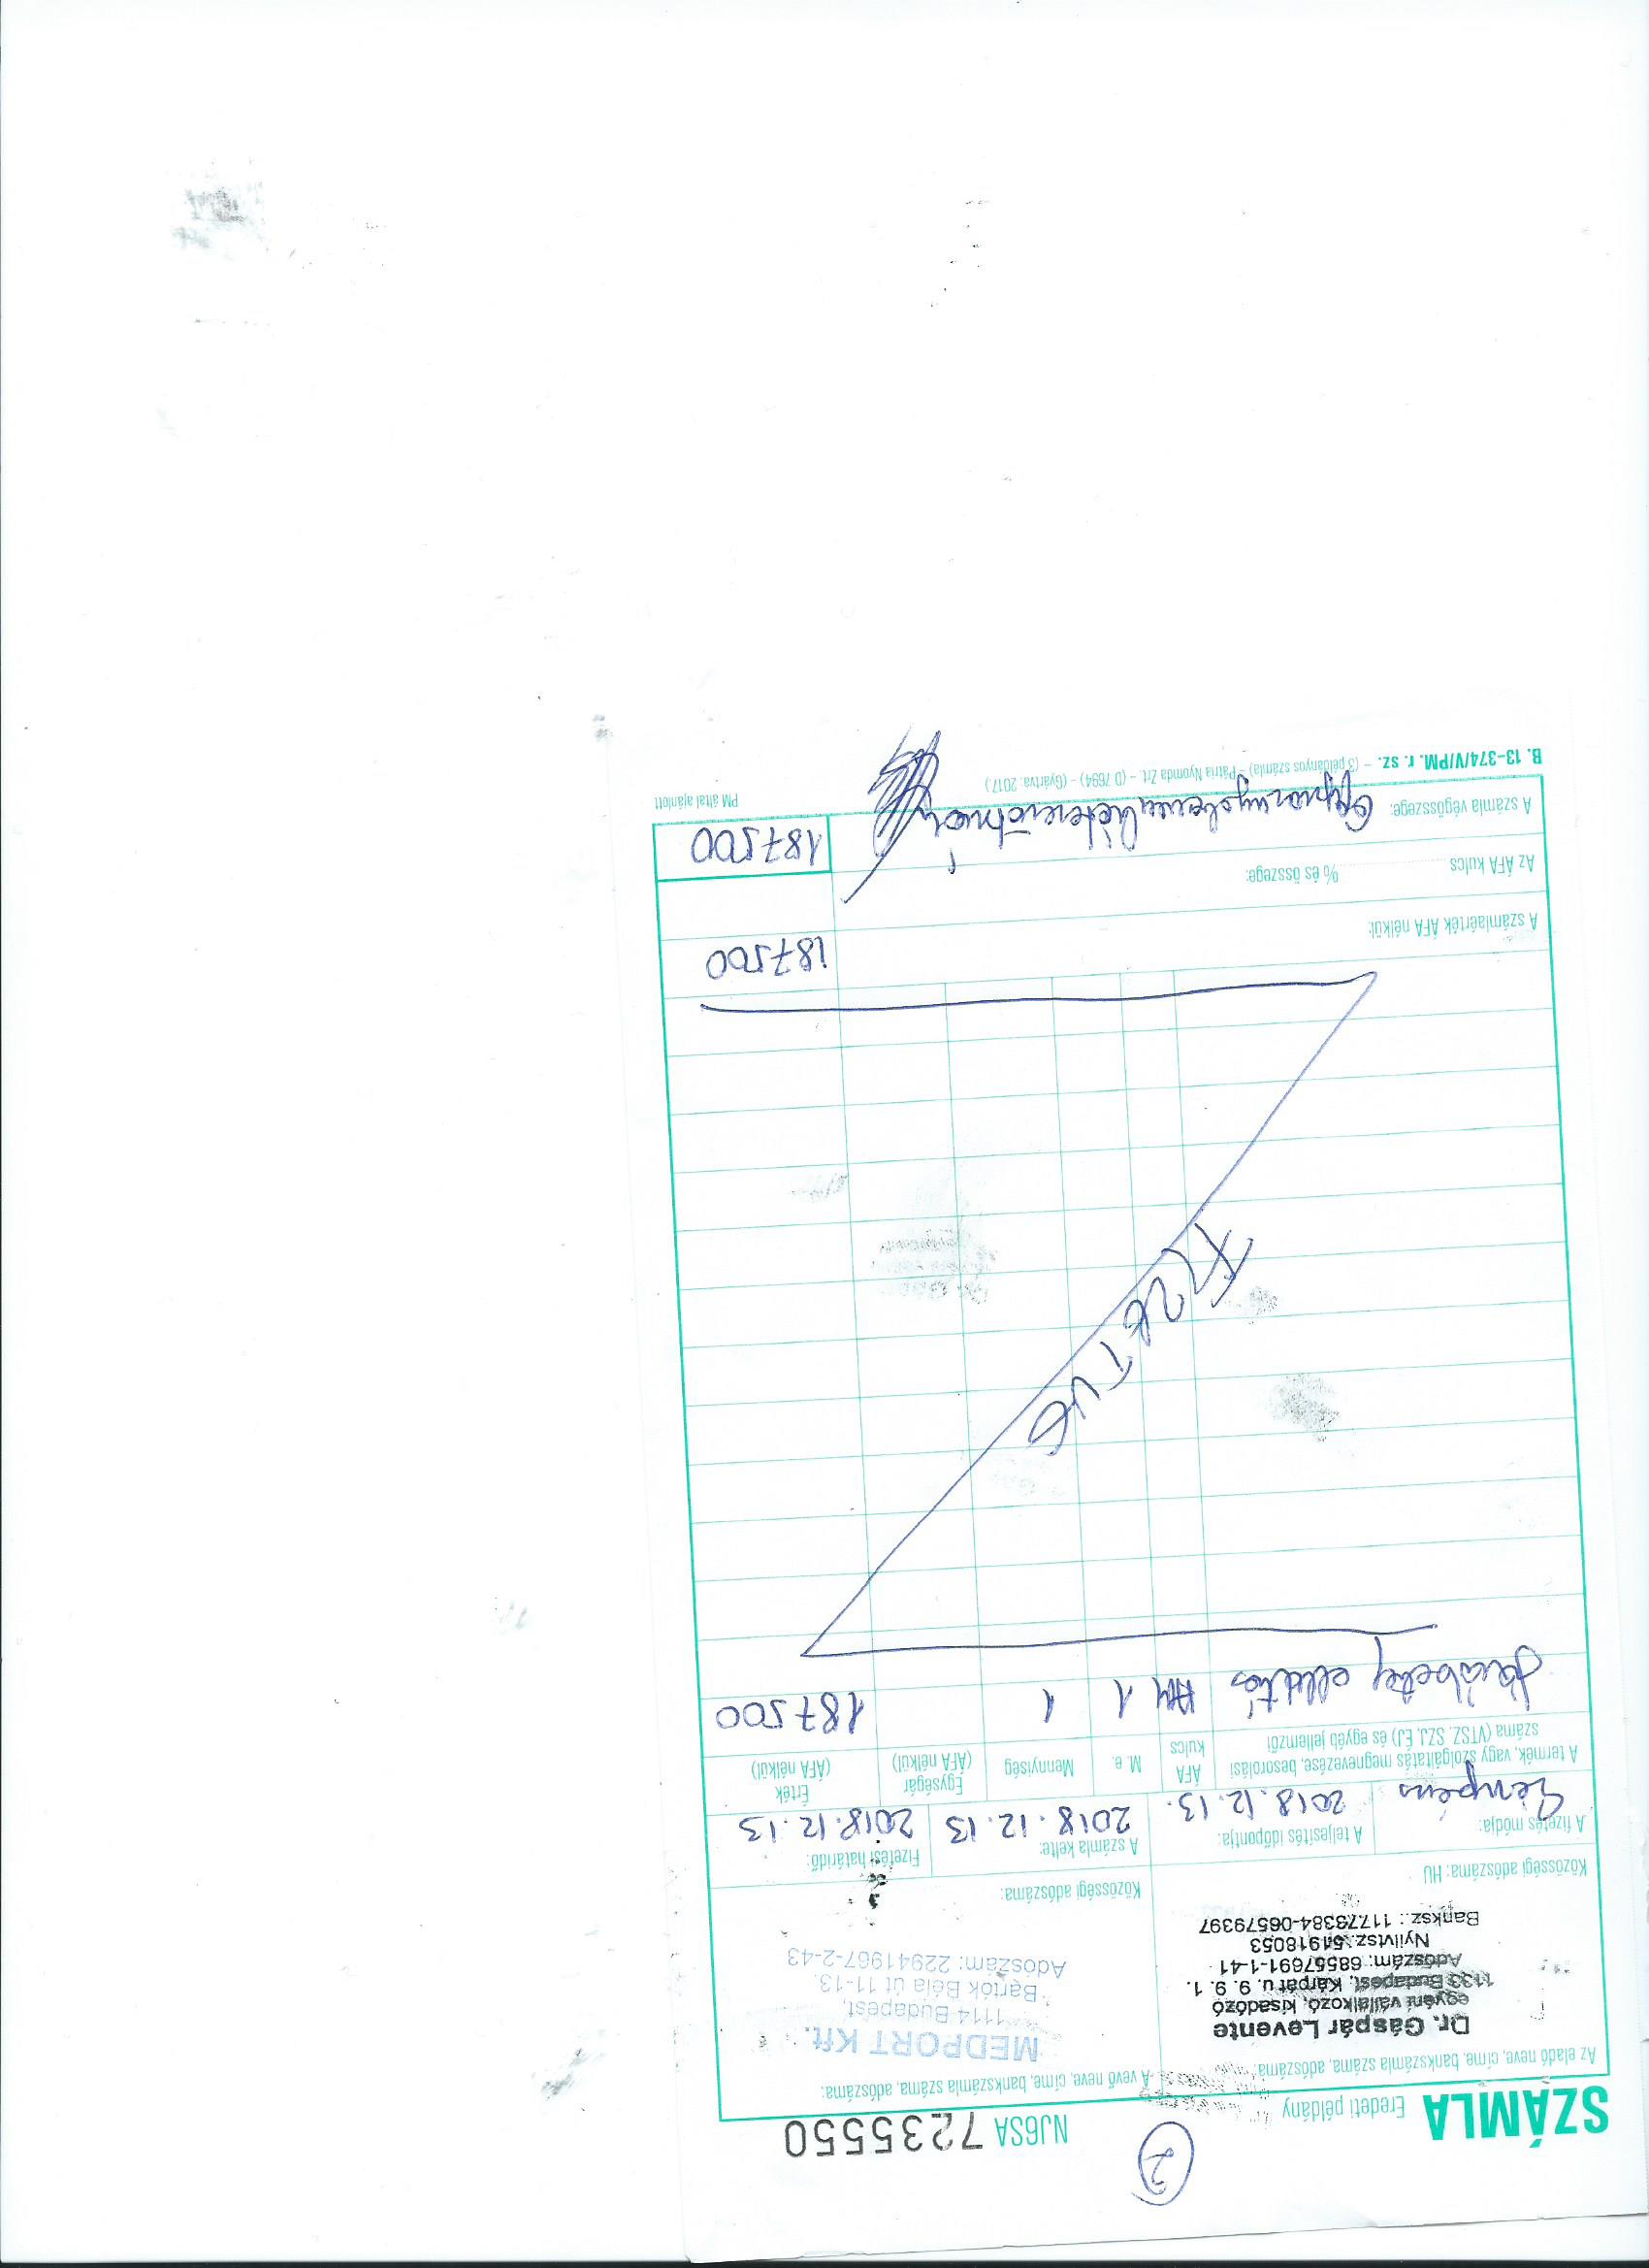 2
SZÁMLA Eredeti példány NJ6SA 7235550
Az eladó neve, címe, bankszámla száma, adószáma:
Dr. Gáspár Levente
egyéni vállalkozó, kisadózó
1133 Budapest, Kárpát u. 9. 9. 1.
Adószám: 68557691-1-41
Nyilvtsz.: 51918053
Banksz.: 11773384-06579397
Közösségi adószáma: HU
A vevő neve, címe, bankszámla száma, adószáma:
MEDPORT Kft.
1114 Budapest,
Bartók Béla út 11-13.
Adószám: 22941967-2-43
Közösségi adószáma:
A fizetés módja: A teljesítés időpontja: A számla kelte: Fizetési határidő:
2018.12.13. 2018.12.13 2018.12.13
A termék, vagy szolgáltatás megnevezése, besorolási száma (VTSZ, SZJ, ÉJ) és egyéb jellemzői
ÁFA kulcs
M. e.
Mennyiség
Egységár (ÁFA nélkül)
Érték (ÁFA nélkül)
Járóbeteg ellátás AM 1 1 187500
FIZETVE
A számlaérték ÁFA nélkül: 187500
Az ÁFA kulcs % és összege:
A számla végösszege: 187500
B. 13-374/V/PM. r. sz. – (3 példányos számla) – Pátria Nyomda Zrt. – (D 7694) – (Gyártva: 2017.) PM által ajánlott